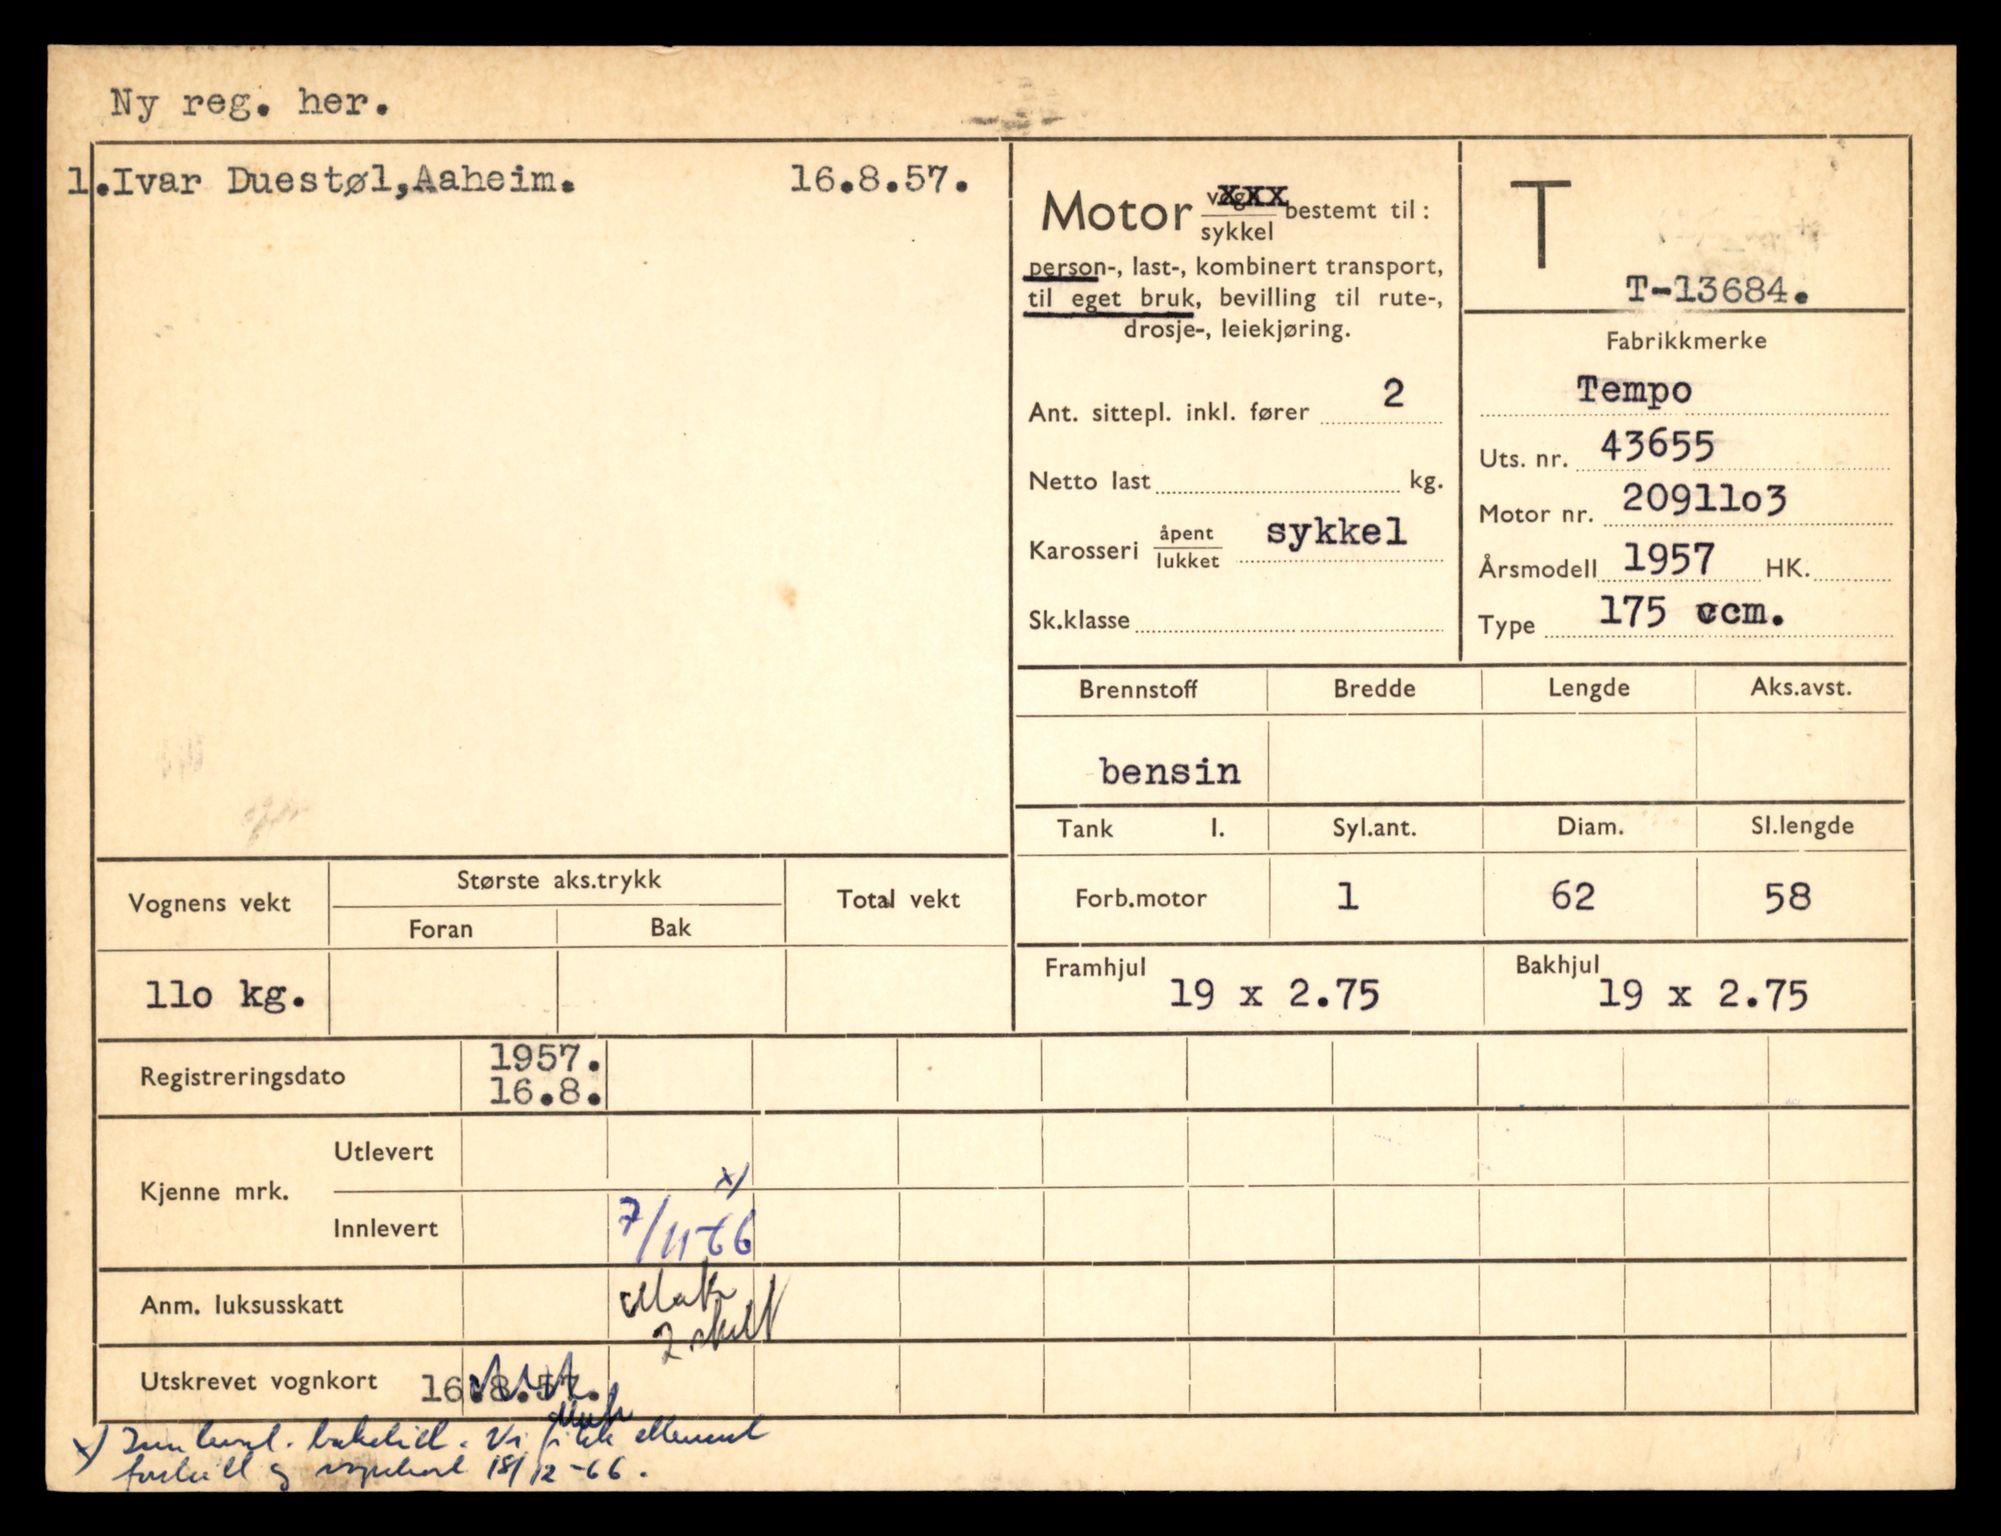 Ny reg. her.
1.Ivar Duestøl,Aaheim. 16.8.57.
Motor vogn xxx / sykkel bestemt til :
person-, last-, kombinert transport,
til eget bruk, bevilling til rute-,
drosje-, leiekjøring.
Ant. sittepl. inkl. fører 2
Netto last kg.
Karosseri åpent / lukket sykkel
Sk.klasse
T
T-13684.
Fabrikkmerke
Tempo
Uts. nr. 43655
Motor nr. 2091lo3
Årsmodell 1957 HK.
Type 175 ccm.
Brennstoff Bredde Lengde Aks.avst.
bensin
Tank l. Syl.ant. Diam. Sl.lengde
Forb.motor 1 62 58
Framhjul 19 x 2.75 Bakhjul 19 x 2.75
Vognens vekt Største aks.trykk Total vekt
Foran Bak
llo kg.
Registreringsdato 1957.
16.8.
Kjenne mrk. Utlevert
x)
Innlevert 7/11-66
Anm. luksusskatt Mak
2 skilt
Utskrevet vognkort 16.8.57.
Mak
x) Innlevert. Vi fikk
og vognkort 15/12-66.